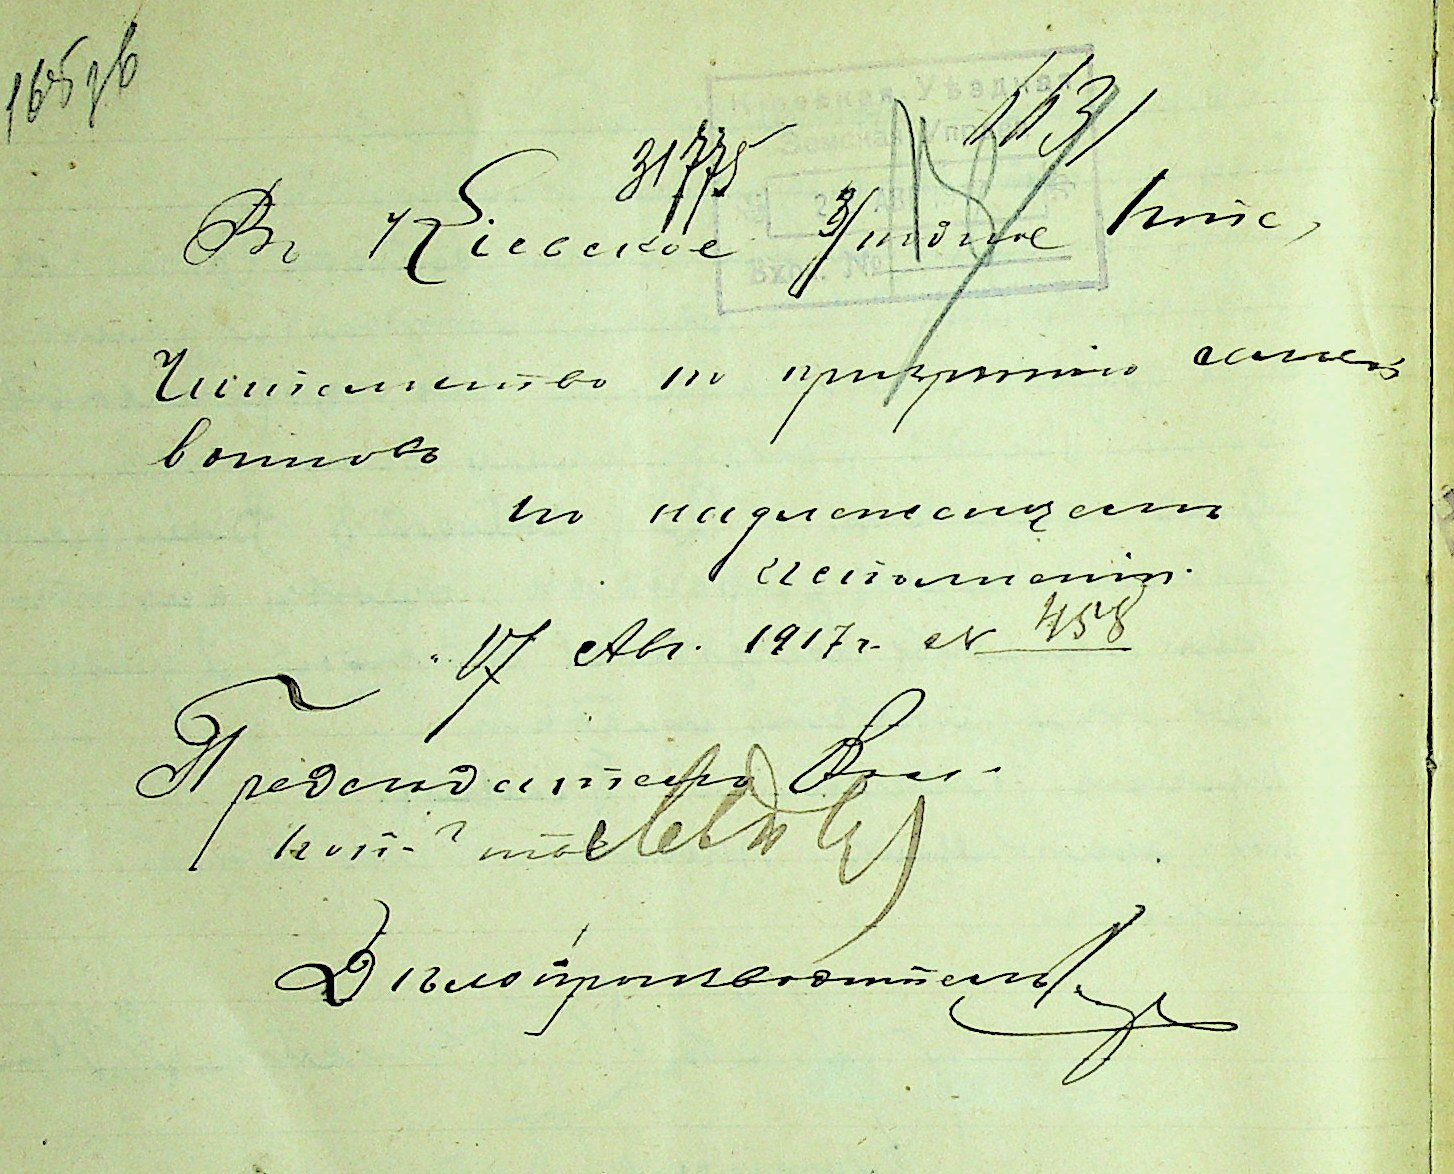 165 зв
1131
31775
Кіевская Уѣздная
Земская Управа
Вход. №
Въ Кіевское Уѣздное Попе,
чительство по призрѣнію семей
воиновъ
по надлежащему
исполненію.
"17 Авг. 1917 г. № 458
Предсѣдатель Вол.
Дѣлопроизводитель